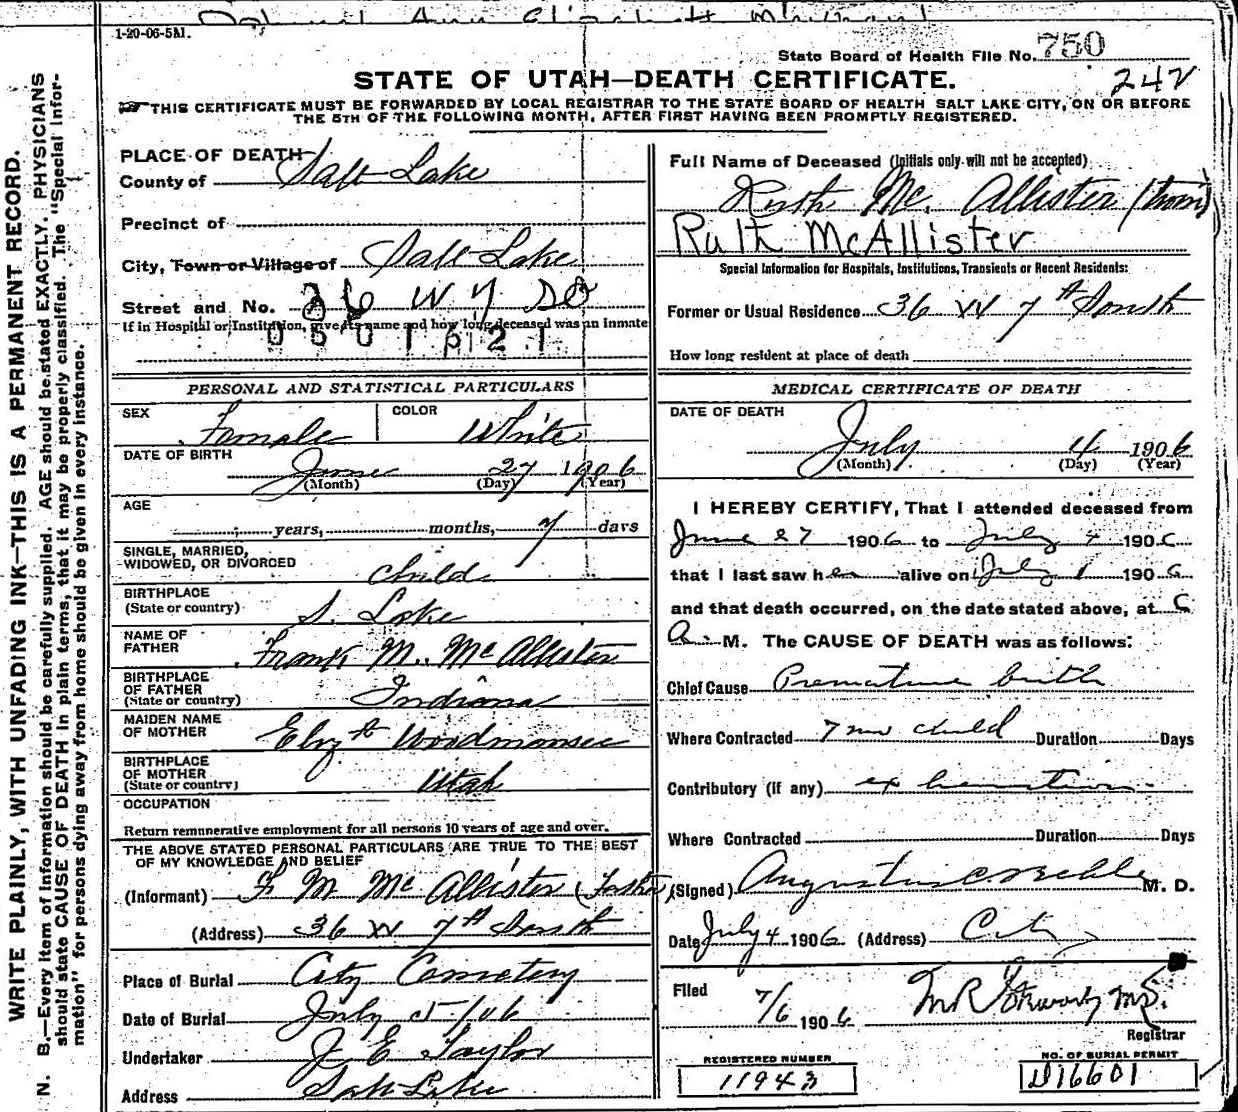 1-20-06-5M.
State Board of Health File No. 750
242
STATE OF UTAH—DEATH CERTIFICATE.
THIS CERTIFICATE MUST BE FORWARDED BY LOCAL REGISTRAR TO THE STATE BOARD OF HEALTH SALT LAKE CITY, ON OR BEFORE
THE 5TH OF THE FOLLOWING MONTH, AFTER FIRST HAVING BEEN PROMPTLY REGISTERED.
WRITE PLAINLY, WITH UNFADING INK—THIS IS A PERMANENT RECORD.
N. B.—Every item of information should be carefully supplied. AGE should be stated EXACTLY. PHYSICIANS
should state CAUSE OF DEATH in plain terms, that it may be properly classified. The "Special Infor-
mation" for persons dying away from home should be given in every instance.
PLACE OF DEATH
County of Salt Lake
Precinct of
City, Town or Village of Salt Lake
Street and No. 36 W 7 So
If in Hospital or Institution, give its name and how long deceased was an inmate
PERSONAL AND STATISTICAL PARTICULARS
SEX Female COLOR White
DATE OF BIRTH June 27 1906
(Month) (Day) (Year)
AGE
years, months, 7 days
SINGLE, MARRIED,
WIDOWED, OR DIVORCED Child
BIRTHPLACE
(State or country) S. Lake
NAME OF
FATHER Frank M. McAllister
BIRTHPLACE
OF FATHER
(State or country) Indiana
MAIDEN NAME
OF MOTHER Elizth Woodmansee
BIRTHPLACE
OF MOTHER
(State or country) Utah
OCCUPATION
Return remunerative employment for all persons 10 years of age and over.
THE ABOVE STATED PERSONAL PARTICULARS ARE TRUE TO THE BEST
OF MY KNOWLEDGE AND BELIEF
(Informant) F M McAllister (Father)
(Address) 36 W 7th South
Place of Burial City Cemetery
Date of Burial July 5/06
Undertaker J E Taylor
Address Salt Lake
Full Name of Deceased (Initials only will not be accepted)
Ruth Mc. Allister (twin)
Ruth McAllister
Special Information for Hospitals, Institutions, Transients or Recent Residents:
Former or Usual Residence 36 W 7th South
How long resident at place of death
MEDICAL CERTIFICATE OF DEATH
DATE OF DEATH
July 4 1906
(Month) (Day) (Year)
I HEREBY CERTIFY, That I attended deceased from
June 27 1906 to July 4 1906
that I last saw her alive on July 1 1906
and that death occurred, on the date stated above, at 6
A. M. The CAUSE OF DEATH was as follows:
Chief Cause Premature birth
Where Contracted 7 mo child Duration Days
Contributory (if any) exhaustion
Where Contracted Duration Days
(Signed) Augustus C Behle M. D.
Date July 4 1906 (Address) City
Filed 7/6 1906
Registrar
REGISTERED NUMBER
11943
NO. OF BURIAL PERMIT
D16601